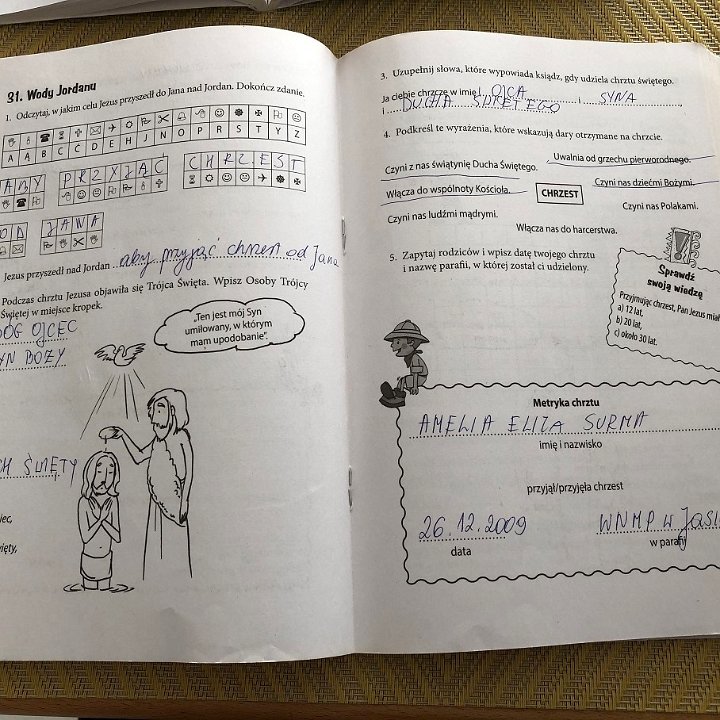 31. Wody Jordanu
1. Odczytaj, w jakim celu Jezus przyszedł do Jana nad Jordan. Dokończ zdanie.
A Ą B C Ć D E H J N O P R S T Y Z
ABY PRZYJĄĆ CHRZEST
OD JANA
Jezus przyszedł nad Jordan aby przyjąć chrzest od Jana
Podczas chrztu Jezusa objawiła się Trójca Święta. Wpisz Osoby Trójcy
Świętej w miejsce kropek.
BÓG OJCEC
SYN BOŻY
„Ten jest mój Syn
umiłowany, w którym
mam upodobanie".
DUCH ŚWIĘTY
3. Uzupełnij słowa, które wypowiada ksiądz, gdy udziela chrztu świętego.
Ja ciebie chrzczę w imię OJCA i SYNA
i DUCHA ŚWIĘTEGO
4. Podkreśl te wyrażenia, które wskazują dary otrzymane na chrzcie.
Uwalnia od grzechu pierworodnego.
Czyni z nas świątynię Ducha Świętego.
Czyni nas dziećmi Bożymi.
Włącza do wspólnoty Kościoła.
CHRZEST
Czyni nas Polakami.
Czyni nas ludźmi mądrymi.
Włącza nas do harcerstwa.
5. Zapytaj rodziców i wpisz datę twojego chrztu
i nazwę parafii, w której został ci udzielony.
Sprawdź
swoją wiedzę
Przyjmując chrzest, Pan Jezus miał
a) 12 lat,
b) 20 lat,
c) około 30 lat.
Metryka chrztu
AMELIA ELIZA SURMA
imię i nazwisko
przyjął/przyjęła chrzest
26.12.2009 WNMP w
data w parafii